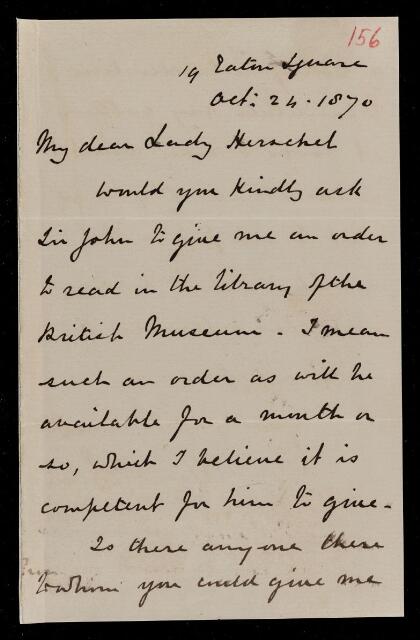 156
19 Eaton Square
Oct: 24. 1870
My dear Lady Herschel
would you kindly ask
Sir John to give me an order
to read in the library of the
British Museum - I mean
such an order as will be
available for a month or
so, which I believe it is
competent for him to give -
Is there anyone there
to whom you could give me